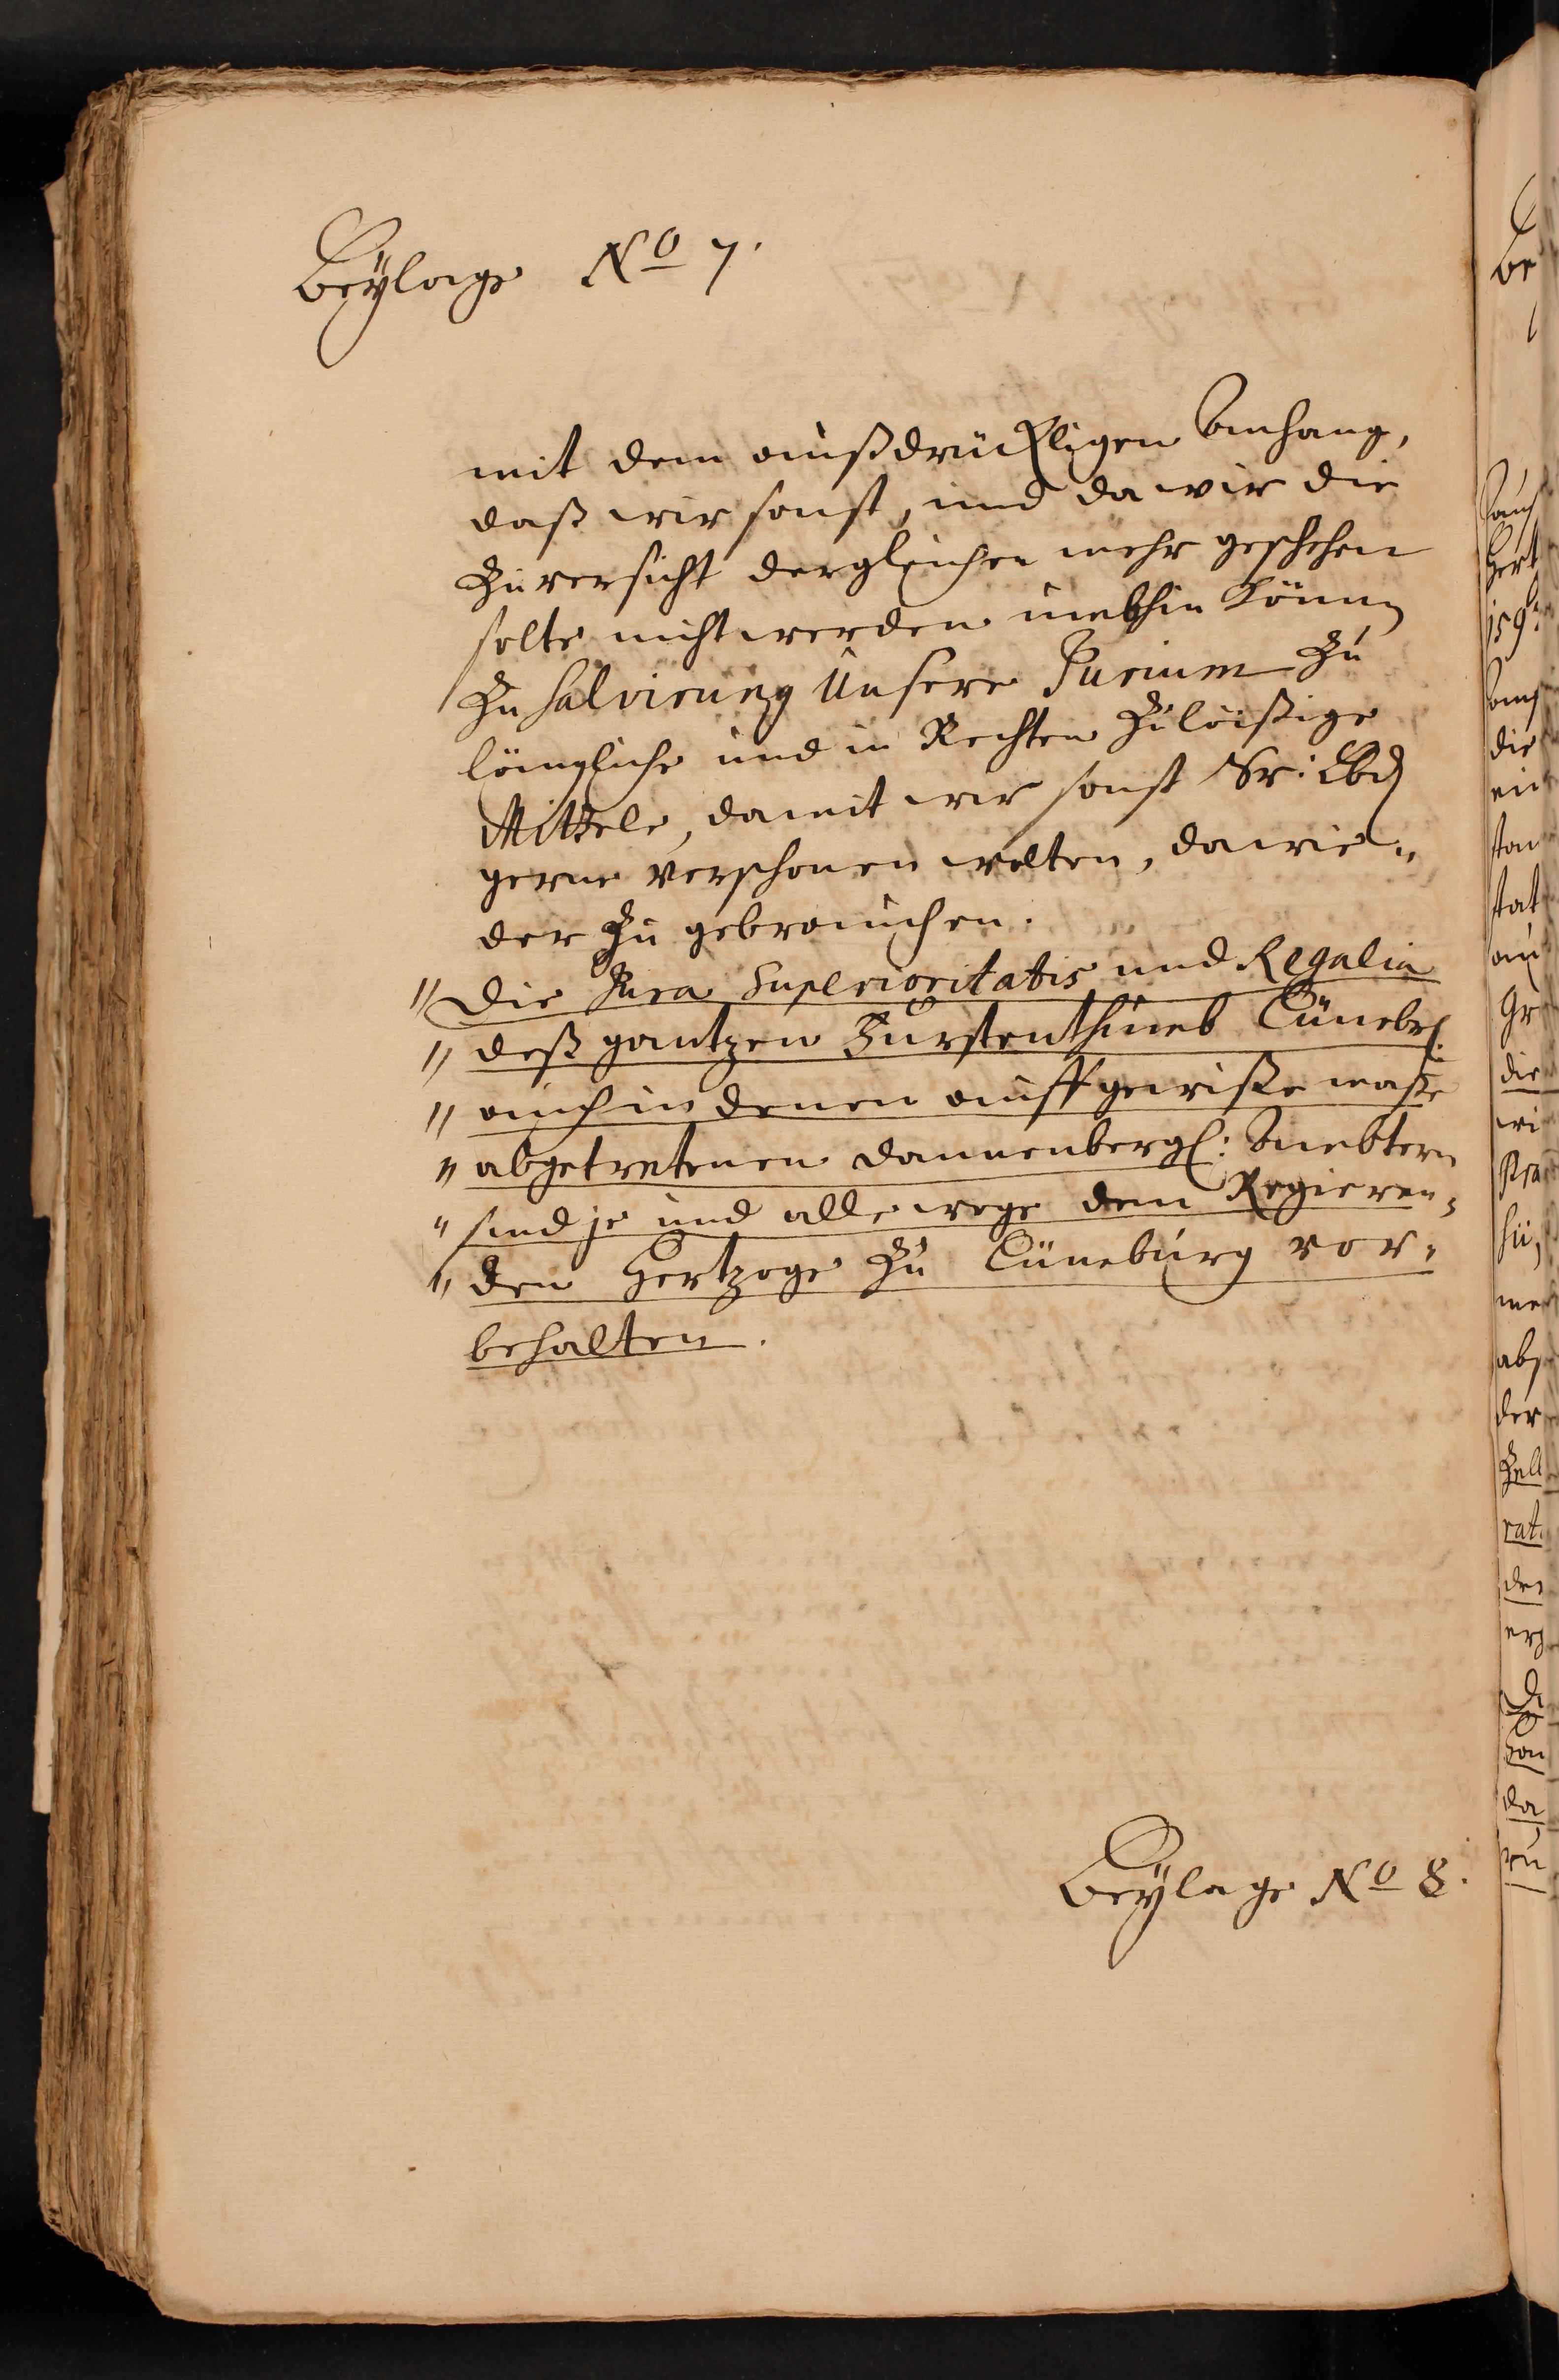 Beylage No 7.
mit dem außdrücklichen Anhang,
daß wir sonst, und da wir die
Zuversicht dergleichen mehr geschehen
solte nicht werden umbhin können
Zu Salvirung Unserer Jurium zu
längliche und in Rechten zuläißige
Mittele, damit wir sonst Sr: Lbd
gerne verschonen wolten, dawie„
der zu gebrauchen.
" Die Jura Superioritatis und Regalia
" deß gantzen Fürstenthumbs Lünebrg.
" auch in denen auff gewiße maße
" abgetretenen Dannenbergl: Ambtern
" sind je und alle wege dem Regieren„
" den Hertzoge zu Lüneburg vor„
behalten.
Beylage No 8.